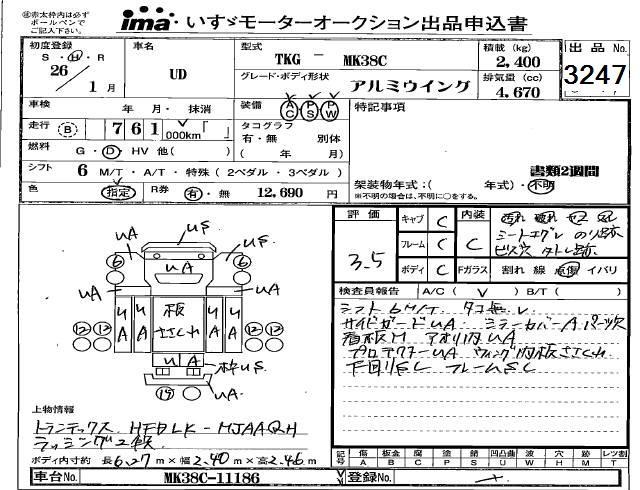 ㊟赤太枠内は必ず
ボールペンで
ご記入下さい。
ima・いすゞモーターオークション出品申込書
初度登録
S・H・R
26
1月
車名
UD
型式
TKG － MK38C
グレード・ボディ形状
アルミウイング
積載(kg)
2,400
排気量(cc)
4,670
出品No.
3247
車検
年 月・ 抹消
装備
AC PS PW
特記事項
走行 B
761,000km「 」
タコグラフ
有・無 別体
( 年 月)
燃料
G・D・HV 他( )
シフト
6 M/T・A/T・特殊(2ペダル・3ペダル)
書類2週間
色
指定
R券
有・無
12,690 円
架装物年式:( 年式)・不明
※不明の場合は、不明に○をする。
評価
3.5
キャブ C
フレーム C
ボディ C
内装
C
シートエグレ のり跡
ビス穴
Fガラス
割れ 線 点傷 イバリ
検査員報告
A/C( ✓ ) B/T( )
シフト6M/T タコ無し
サイドガードUA ミラーカバーA
看板M アオリ内UA
プロテクターUA ウィング内板ささくれ
下回りSC フレームSC
UA
US
US
6
UA
6
UA
UA
UA
UA
板
ささくれ
UA
UA
12 12
12 12
UA
枠US
19
UA
上物情報
トランテックス HFDLK-MJAAQH
ラッシング2段
ボディ内寸約 長6.27m×幅2.40m×高2.46m
記号
傷 A
板金 B
腐 C
塗 P
錆 S
凹凸曲 U
波 W
穴 H
跡 M
レツ割 T
車台No.
MK38C-11186
登録No.